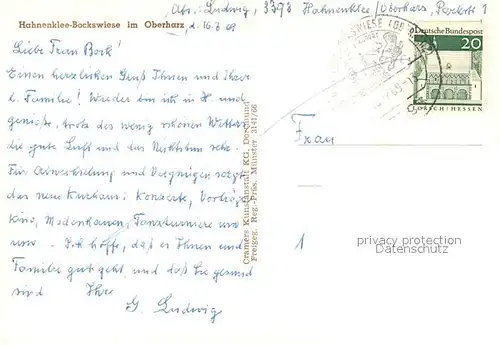 Abs.: Ludwig, 3393 Hahnenklee/Oberharz, Parkstr 1
Hahnenklee-Bockswiese im Oberharz, d. 16.7.69
Liebe Frau Bock!
Einen herzlichen Gruß Ihnen und Ihrer
l. Familie! Wieder bin ich in H und
genieße, trotz des wenig schönen Wetters
die gute Luft und das Nichtstun sehr.
Für Abwechslung und Vergnügen sorgt
das neue Kurhaus: Konzerte, Vorträge
Kino, Modenschauen, Tanzturniere usw
usw. Ich hoffe, daß es Ihnen und
Familie gut geht, und daß Sie gesund
sind Ihre
G. Ludwig
Cramers Kunstanstalt KG, Dortmund
Freigeg. Reg.-Präs. Münster 3141/66
Deutsche Bundespost
20
LORSCH/HESSEN
Frau
1
privacy protection
AnsichtskartenCenter